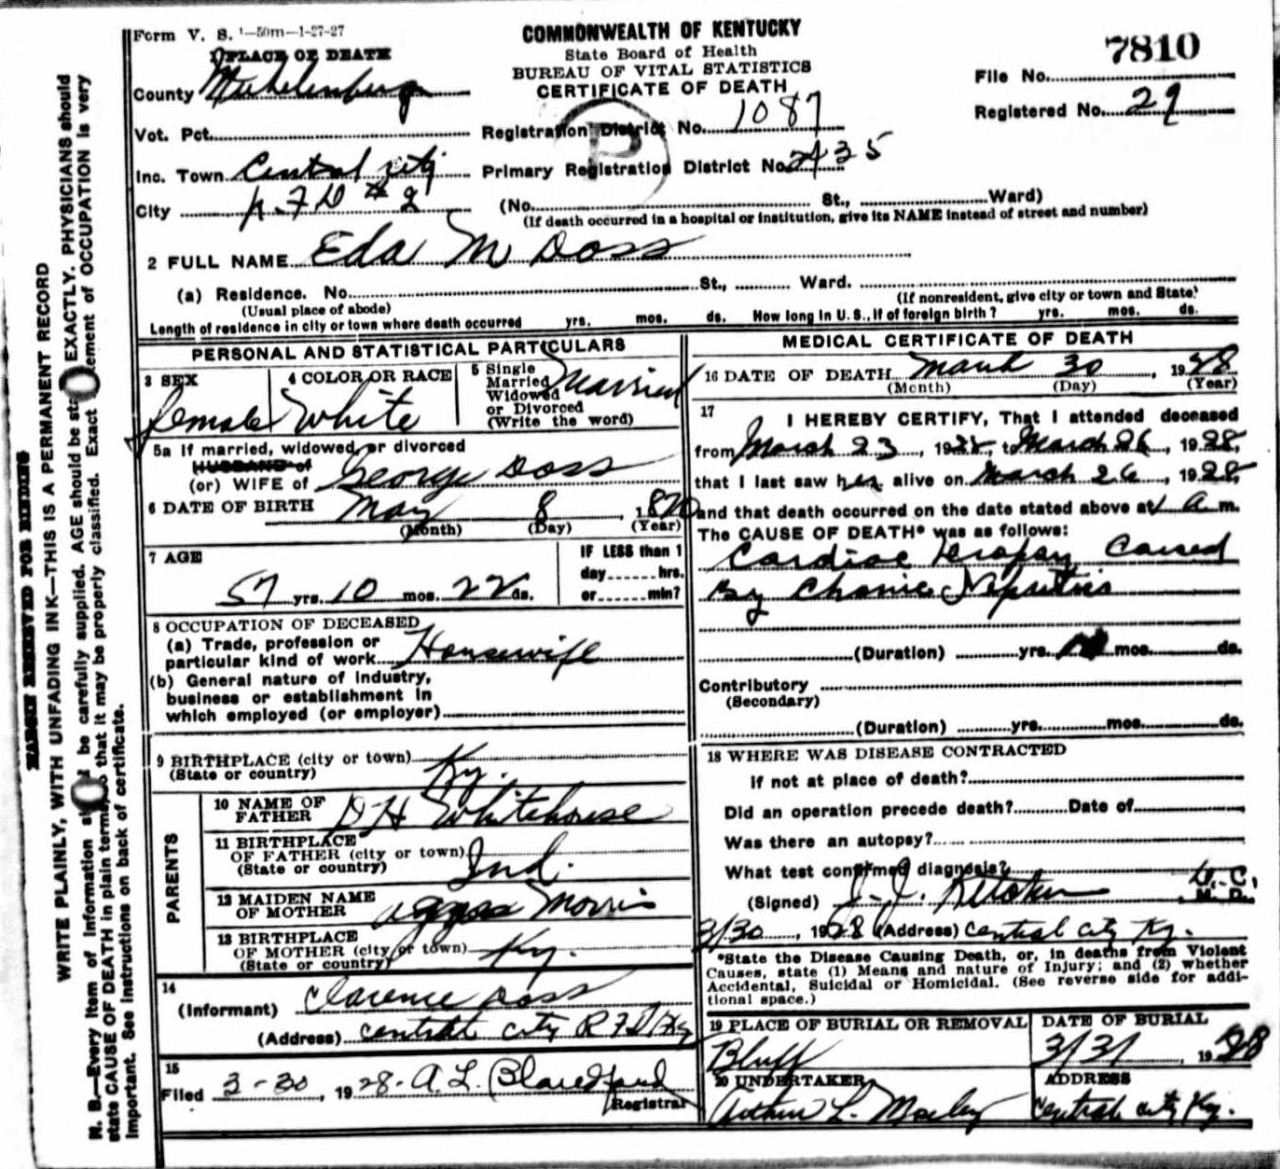 Form V. S. 1—50m—1-27-27
COMMONWEALTH OF KENTUCKY
State Board of Health
BUREAU OF VITAL STATISTICS
CERTIFICATE OF DEATH
7810
File No.
Registered No. 29
1 PLACE OF DEATH
County Muhelenberg
Vot. Pct.
Registration District No. 1087
Inc. Town Central city
Primary Registration District No. 2435
City R.F.D #2 (No. St., Ward)
(If death occurred in a hospital or institution, give its NAME instead of street and number)
P
2 FULL NAME Eda M Doss
(a) Residence. No. St., Ward.
(Usual place of abode) (If nonresident, give city or town and State)
Length of residence in city or town where death occurred yrs. mos. ds. How long in U. S., if of foreign birth? yrs. mos. ds.
PERSONAL AND STATISTICAL PARTICULARS
3 SEX
female
4 COLOR OR RACE
White
5 Single
Married
Widowed
or Divorced
(Write the word)
Married
5a If married, widowed, or divorced
HUSBAND of
(or) WIFE of George Doss
6 DATE OF BIRTH May 8, 1870
(Month) (Day) (Year)
7 AGE
57 yrs. 10 mos. 22 ds.
IF LESS than 1
day hrs.
or min?
8 OCCUPATION OF DECEASED
(a) Trade, profession or
particular kind of work Housewife
(b) General nature of industry,
business or establishment in
which employed (or employer)
9 BIRTHPLACE (city or town)
(State or country) Ky.
PARENTS
10 NAME OF
FATHER D H Whitehouse
11 BIRTHPLACE
OF FATHER (city or town)
(State or country) Ind.
12 MAIDEN NAME
OF MOTHER Morris
13 BIRTHPLACE
OF MOTHER (city or town)
(State or country) Ky.
14
(Informant) Clarence Doss
(Address) central city R F D Ky
15
Filed 3-30, 1928. A. L. Blandford
Registrar
MEDICAL CERTIFICATE OF DEATH
16 DATE OF DEATH March 30, 1928
(Month) (Day) (Year)
17
I HEREBY CERTIFY, That I attended deceased
from March 23, 1928, to March 26, 1928,
that I last saw her alive on March 26, 1928,
and that death occurred on the date stated above at a. m.
The CAUSE OF DEATH* was as follows:
Cardiac Dropsy Caused
By Chronic Nephritis
(Duration) yrs. mos. ds.
Contributory
(Secondary)
(Duration) yrs. mos. ds.
18 WHERE WAS DISEASE CONTRACTED
If not at place of death?
Did an operation precede death? Date of
Was there an autopsy?
What test confirmed diagnosis?
(Signed) J. J. D.C. M. D.
3/30, 1928 (Address) central city Ky.
*State the Disease Causing Death, or, in deaths from Violent
Causes, state (1) Means and nature of Injury; and (2) whether
Accidental, Suicidal or Homicidal. (See reverse side for addi-
tional space.)
19 PLACE OF BURIAL OR REMOVAL
Bluff
DATE OF BURIAL
3/31, 1928
20 UNDERTAKER
Arthur L. Mosley
ADDRESS
Central city Ky.
MARGIN RESERVED FOR BINDING
WRITE PLAINLY, WITH UNFADING INK—THIS IS A PERMANENT RECORD
N. B.—Every item of information should be carefully supplied. AGE should be stated EXACTLY. PHYSICIANS should
state CAUSE OF DEATH in plain terms, so that it may be properly classified. Exact statement of OCCUPATION is very
important. See instructions on back of certificate.